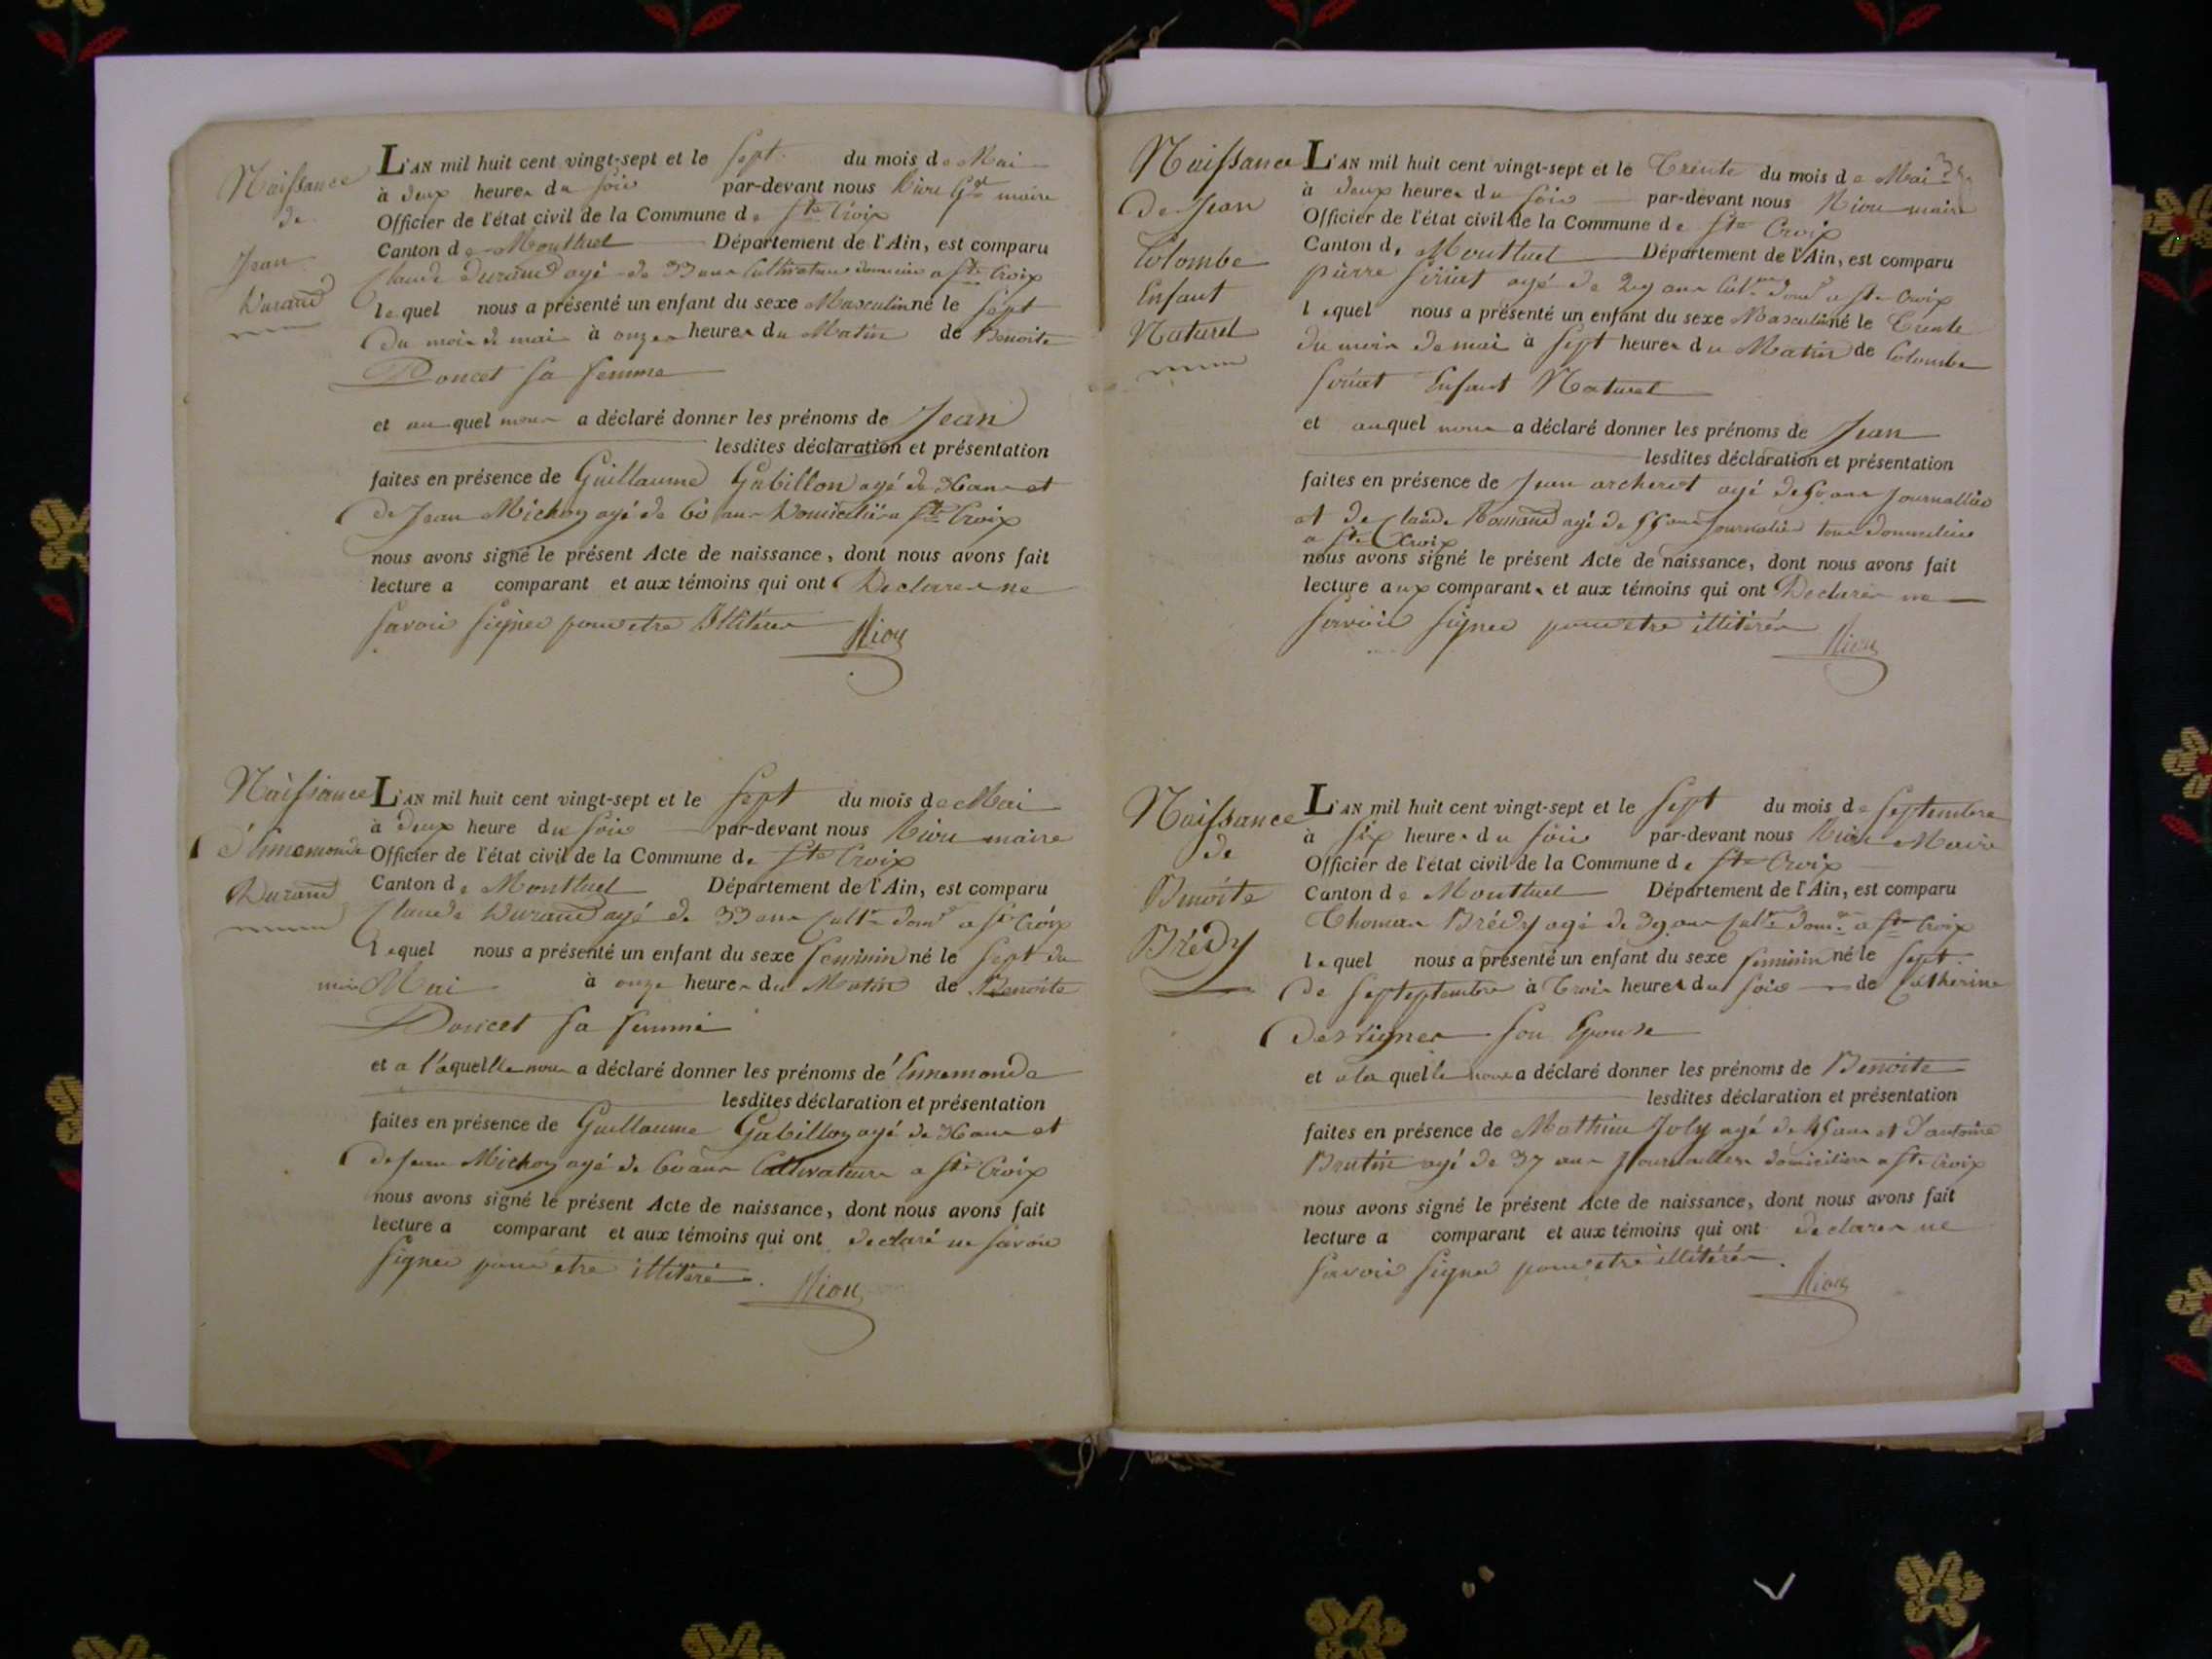 Naissance
de
Jean
Durand
L'AN mil huit cent vingt-sept et le sept du mois de Mai
à deux heures du soir par-devant nous Niou maire
Officier de l'état civil de la Commune de Ste Croix
Canton de Montluel Département de l'Ain, est comparu
Claude Durand agé de 33 ans Cultivateur a Ste Croix
lequel nous a présenté un enfant du sexe Masculin né le sept
du mois de mai à onze heures du Matin de Benoite
Poncet sa femme
et au quel nous a déclaré donner les prénoms de Jean
lesdites déclaration et présentation
faites en présence de Guillaume Gabillon agé de ans et
de Jean Michon agé de 60 ans Domiciliés a Ste Croix
nous avons signé le présent Acte de naissance, dont nous avons fait
lecture a comparant et aux témoins qui ont Declarer ne
savoir signer pour etre
Niou
Naissance
d'Ennemonde
Durand
L'AN mil huit cent vingt-sept et le sept du mois de Mai
à deux heure du soir par-devant nous Niou maire
Officier de l'état civil de la Commune de Ste Croix
Canton de Montluel Département de l'Ain, est comparu
Claude Durand agé de 33 ans Cultr domé a Ste Croix
lequel nous a présenté un enfant du sexe feminin né le sept du
mois Mai à onze heures du Matin de Benoite
Poncet sa femme
et a l'aquelle nous a déclaré donner les prénoms dé Ennemonde
lesdites déclaration et présentation
faites en présence de Guillaume Gabillon agé de ans et
de Jean Michon agé de 60 ans Cultivateurs a Ste Croix
nous avons signé le présent Acte de naissance, dont nous avons fait
lecture a comparant et aux témoins qui ont declaré ne savoir
signer pour etre illitéré.
Niou
Naissance
de Jean
Colombe
Enfant
Naturel
L'AN mil huit cent vingt-sept et le Trente du mois de Mai
à deux heures du soir par-devant nous Niou maire
Officier de l'état civil de la Commune de Ste Croix
Canton de Montluel Département de l'Ain, est comparu
pierre agé de 29 ans a Ste Croix
lequel nous a présenté un enfant du sexe Masculin né le Trente
du mois de mai à sept heures du Matin de Colombe
Enfant Naturel
et auquel nous a déclaré donner les prénoms de Jean
lesdites déclaration et présentation
faites en présence de Jean archerot agé de 50 ans Journallier
et de Claude agé de 55 ans Journalier tous domiciliés
a Ste Croix
nous avons signé le présent Acte de naissance, dont nous avons fait
lecture aux comparants et aux témoins qui ont Declarer ne
savoir signer pour etre illitérés
Niou
Naissance
de
Benoite
Brédy
L'AN mil huit cent vingt-sept et le sept du mois de septembre
à six heures du soir par-devant nous Niou Maire
Officier de l'état civil de la Commune de Ste Croix
Canton de Montluel Département de l'Ain, est comparu
Thomas Brédy agé de 39 ans Cultr domé a Ste Croix
lequel nous a présenté un enfant du sexe feminin né le sept
de septeptembre à Trois heures du soir de Catherine
Desvignes son Epouse
et a la quelle nous a déclaré donner les prénoms de Benoite
lesdites déclaration et présentation
faites en présence de Mathieu Joly agé de 45 ans et d'antoine
Brutin agé de 37 ans Journalliers domiciliés a Ste Croix
nous avons signé le présent Acte de naissance, dont nous avons fait
lecture a comparant et aux témoins qui ont declarer ne
savoir signer pour etre illitérés.
Niou